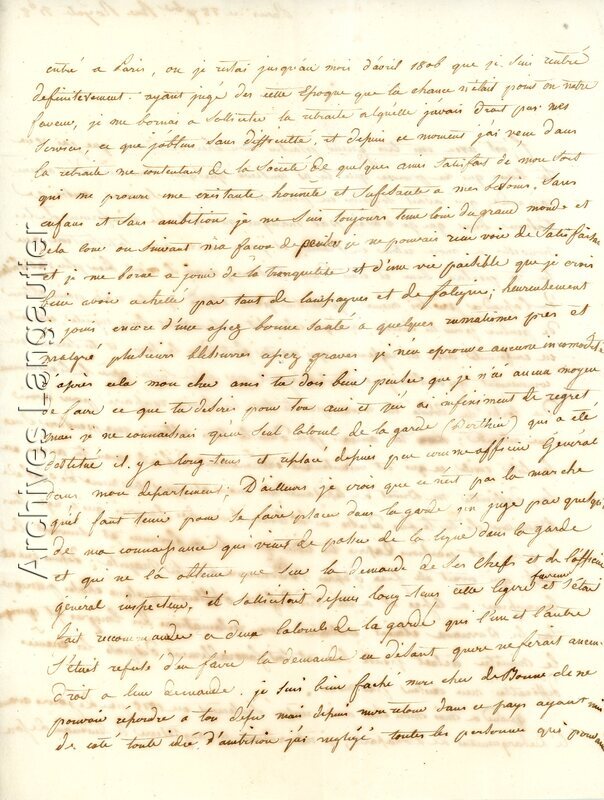 entré a Paris, ou je restai jusqu'au mois d'avril 1806 que je suis rentré
definitevement. ayant jugé des cette Epoque que la chance n'était point en notre
faveur, je me bornai a solliciter la retraite a laquelle j'avais droit par mes
services, ce que j'obtins sans difficulté, et depuis ce moment j'ai vecu dans
la retraite me contentant de la Société de quelques amis satisfait de mon sort
qui me procure une existante honnete et sufesante a mes besoins, Sans
enfans et sans ambition je me suis toujours tenu loin du grand monde et
de la cour ou suivant ma façon de penser je ne pouvais rien voir de satisfaisan
et je me borne a jouir de la tranquilité et d'une vie paisible que je crois
bien avoir achettée par tant de campagnes et de fatigue; heureusement
je jouis encore d'une assez bonne santé a quelques rumatismes près et
malgré plusieurs blessures assez graves je n'en eprouve aucune incomodité
d'après cela mon cher ami tu dois bien penser que je n'ai aucun moyen
de faire ce que tu desires pour ton ami et j'en ai infiniment de regret
mais je ne connaissais qu'un seul colonel de la garde (Berthier) qui a été
destitué il y a long-tems et replacé depuis peu comme officier General
dans mon departement; D'ailleurs je crois que ce n'est pas la marche
qu'il faut tenir pour se faire placer dans la garde j'en juge par quelqu'
de ma connaissance qui vient de passer de la ligne dans la garde
et qui ne l'a obtenu que sur la demande de ses chefs et de l'officier
général inspecteur, il sollicitait depuis long-tems cette faveur et s'était
fait recommander a deux colonels de la garde qui l'un et l'autre
s'étais refusé d'en faire la demande en disant qu'on ne ferait aucun
droit a leur demande. je suis bien faché mon cher de Bonne de ne
pouvoir répondre a ton désir mais depuis mon retour dans ce pays ayant mis
de coté toute idée d'ambition j'ai negligé toutes les personnes qui pouvai
Archives Langautier